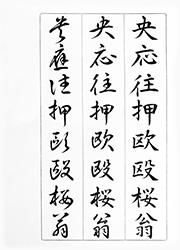 央応往押欧殴桜翁
央応往押欧殴桜翁
央応往押欧殴桜翁